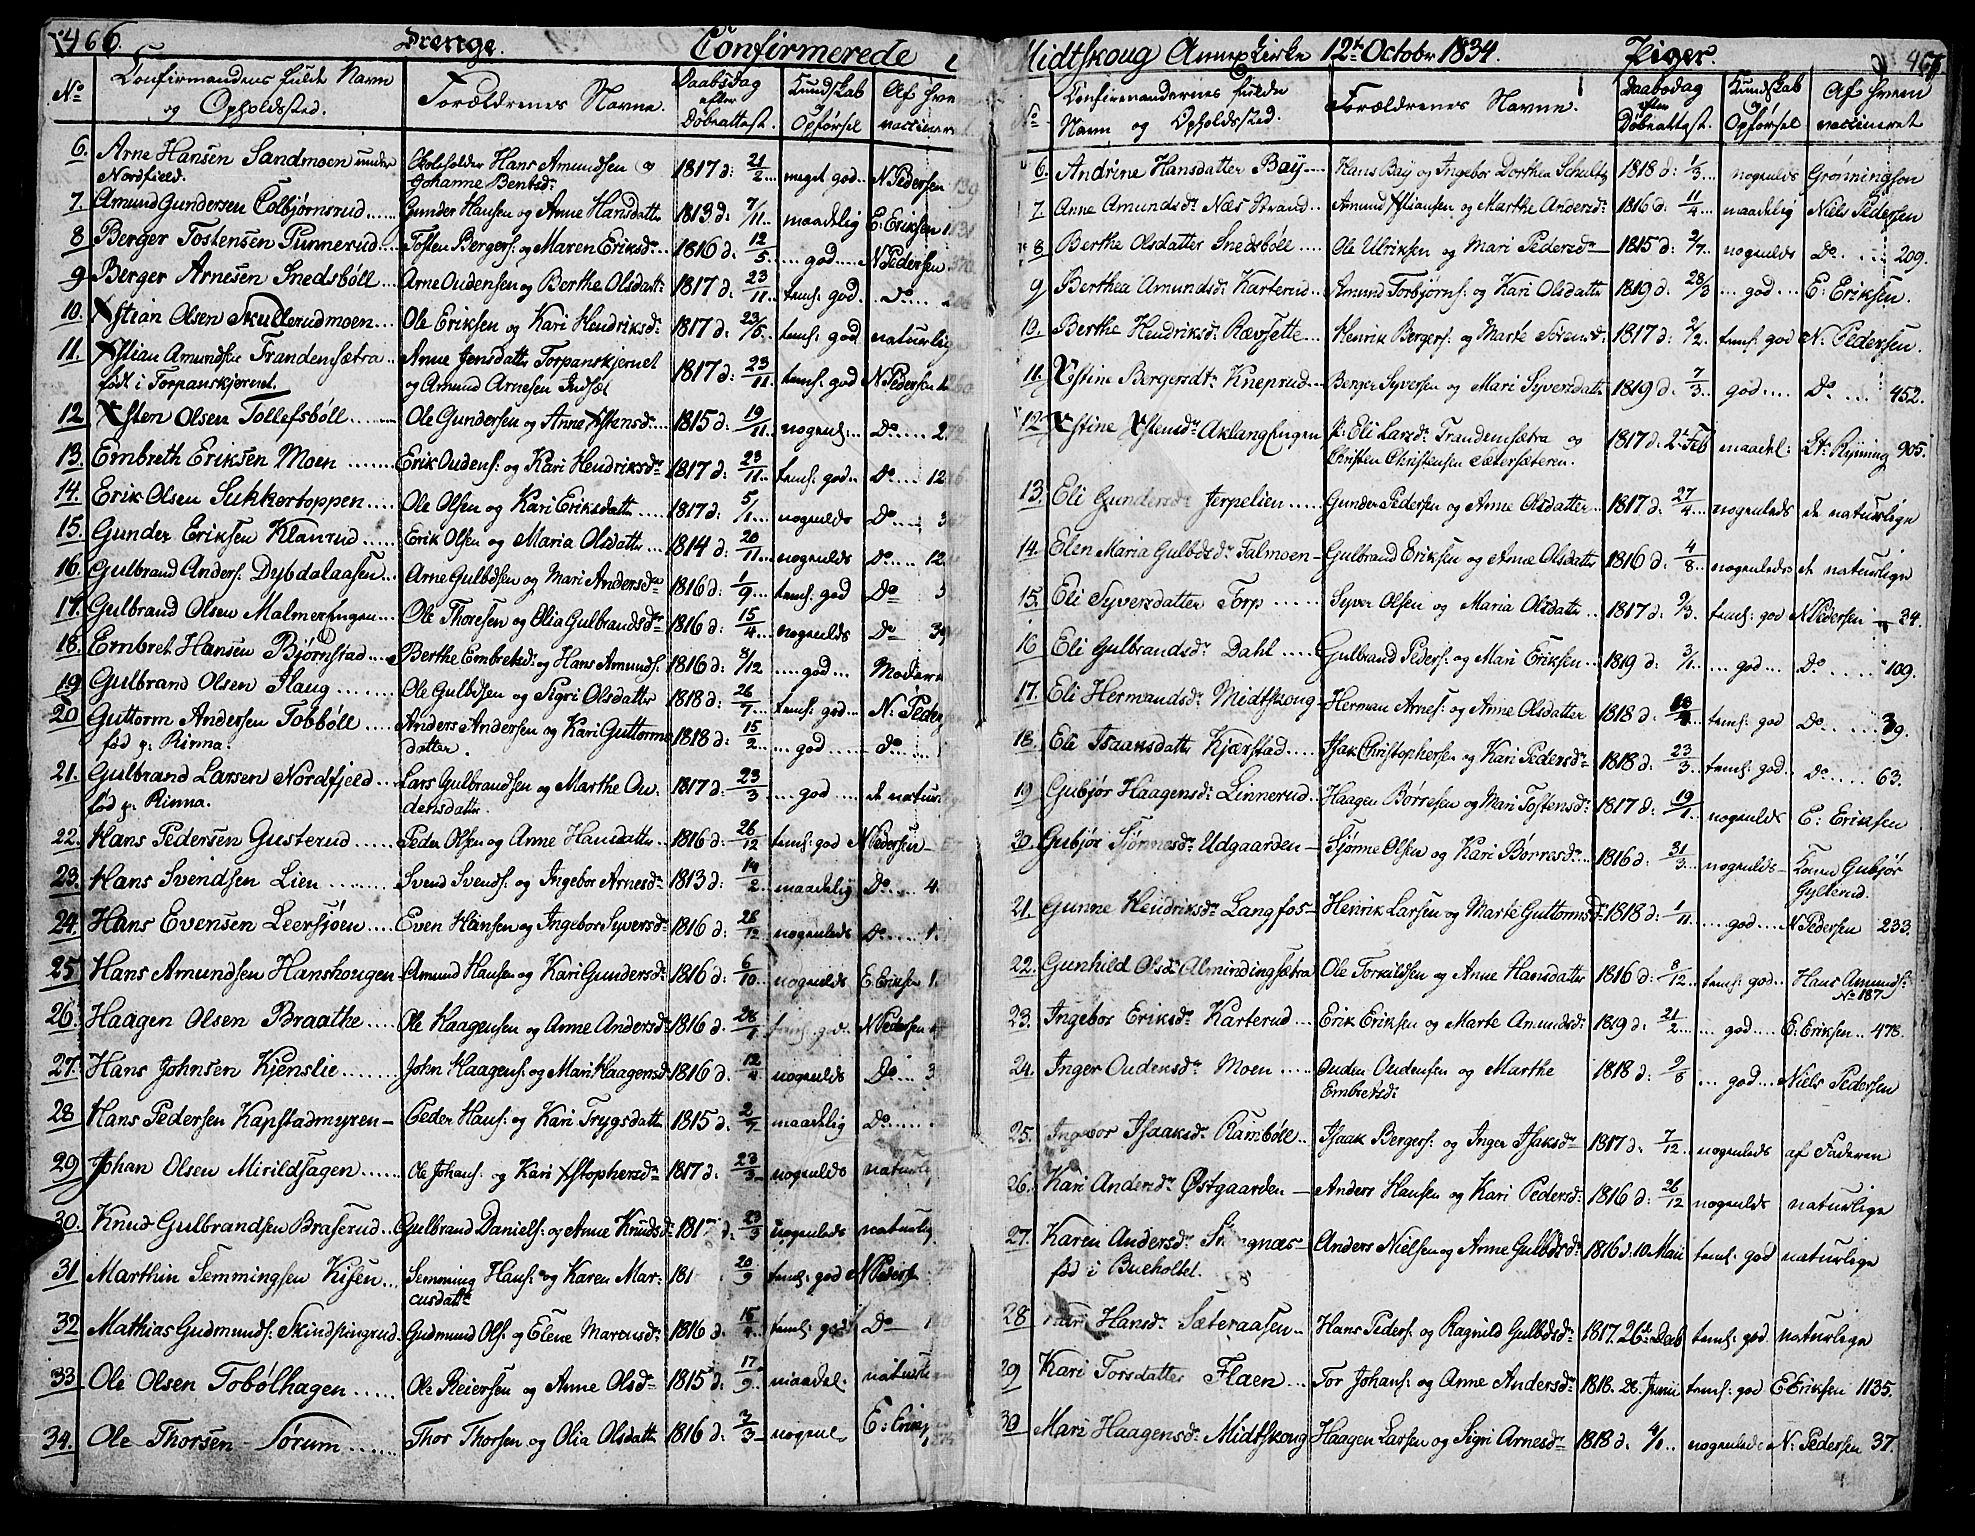 466. Drenge. Confirmerede i
No Confirmandens fulde Navn og Opholdssted. Forældrenes Navne. Daabsdag efter Døbeattest. Kundskab og Opførsel Af hvem vaccineret
6. Arne Hansen Sandmoen under Nordfield. Hans Amundsen og Johanne Bentsd: 1817 d: 21/2 meget god N Pedersen
7. Amund Gundersen Colbjørnsrud Gunder Hansen og Anne Hansdatter 1813 d: 7/11 maadelig E: Eriksen
8 Berger Tostensen Punnerud Tosten Bergers: og Maren Eriksdr 1816 d: 12/5 god N Pedersen
9 Berger Arnesen Snedsböll Arne Oudensen og Berthe Olsdatt: 1817 d: 23/11 teml: god Do
10. Xstian Olsen Skullerudmoen Ole Eriksen og Kari Hendriksdr 1817 d: 23/5 teml: god naturlig
11. Xstian Amundsen Trandemsætra født i Torpanskjernet. Anne Jensdatter Torpanskjernet og Amund Arnesen Indsøt 1817 d: 23/11 teml: god N Pedersen
12 Xsten Olsen Tollefsböll Ole Gundersen og Anne Xstensdr 1815 d: 19/11 nogenl: Do
13. Embreth Eriksen Moen Erik Oudens: og Kari Hendriksdr 1817 d: 23/11 teml: god Do
14. Erik Olsen Sukkertoppen Ole Olsen og Kari Eriksdatter 1817 d: 5/1 nogenlds Do
15. Gunder Eriksen Klanrud Erik Olsen og Maria Olsdatter 1814 d: 20/11 nogenlds Do
16. Gulbrand Anders: Dybdalaasen Arne Gulbdsen og Mari Andersdr 1816 d: 1/9 teml: god Do
17. Gulbrand Olsen Malmerengen Ole Thoresen og Olia Gulbrandsdr 1816 d: 15/4 nogenlds Do
18. Embret Hansen Bjørnstad Berthe Embretsd: og Hans Amunds: 1816 d: 8/12 god
19 Gulbrand Olsen Haug Ole Gulbdsen og Sigri Olsdatter 1818 d: 26/7 teml: god N: Peder
20 Guttorm Andersen Tobböll fød p: Rinna. Anders Andersen og Kari Guttorms datter. 1818 d: 15/2 god Do
21. Gulbrand Larsen Nordfjeld fød p: Rinna. Lars Gulbrandsen og Marthe Oudensdatter 1817 d: 23/3 god de naturlig
22. Hans Pedersen Gusterud Peder Olsen og Anne Hansdatter 1816 d: 26/12 teml: god N Pedersen
23. Hans Svendsen Lien Svend Svends: og Ingebor Arnesdr 1813 d: 14/2 maadelig Do
24. Hans Evensen Leersjøen Even Hansen og Ingebor Syversdr 1816 d: 26/12 nogenlds Do
25 Hans Amundsen Hanskougen Amund Hansen og Kari Gundersdr 1816 d: 6/10 nogenlds E: Eriksen
26. Haagen Olsen Braathe Ole Haagensen og Anne Andersdr 1816 d: teml: god N Pedersen
27. Hans Johnsen Kjenslie John Haagens: og Mari Haagensd: 1816 d: 12/4 nogenlds Do
28 Hans Pedersen Kapstadmyren Peder Hans: og Kari Trygsdatter 1815 d: 2/7 maadelig Do
29 Johan Olsen Mirildhagen Ole Johans: og Kari Xstophersdr 1817 d: 23/3 nogenlds naturlig
30. Knud Gulbrandsen Braserud Gulbrand Daniels: og Anne Knudsdr 1817 d: 23/3 nogenlds naturlig
31 Marthin Semmingsen Kisen Semming Hans: og Karen Marcusdattr 20/9 teml: god N Peders
32 Mathias Gudmunds: Skindpingrud Gudmund Ols: og Elene Marcusdr 1816 d: 15/4 teml: god Do
33 Ole Olsen Tobölhagen Ole Reiersen og Anne Olsdr 1815 d: 17/9 maadel: naturlig
34. Ole Thorsen Sørum Thor Thorsen og Olia Olsdattr 1816 d: 3/3 nogenl. E: Erik
Midtskoug Annexkirke 12te October 1834. Piger. 467
No Confirmandernes fulde Navn og Opholdssted. Forældrenes Navne. Daabsdag efter Døbeattest. Kundskab og Opførsel Af hvem vaccineret
6. Andrine Hansdatter Baÿ Hans Baÿ og Ingebor Dorthea Schultz 1818 d: 1/3 nogenlds Grønningson
7. Anne Amundsdr Næs Strand Amund Xstiansen og Marthe Andersdr 1816 d: 11/4 maadelig Niels Pedersen
8 Berthe Olsdatter Snedsböll Ole Ulriksen og Mari Pedersdr 1815 d: 2/7 nogenlds Do 209.
9 Berthea Amundsd: Karterud Amund Torbjørns: og Kari Olsdatter 1819 d: 28/3 god E: Eriksen.
10. Berthe Hendriksd: Rævsette Henrik Bergers: og Marte Sorensd: 1817 d: 2/2 teml: god N: Pedersen.
11. Xstine Bergersdtr Kneprud Berger Syversen og Mari Syversdatter 1819 d: 7/3 god Do 452.
12 Xstine Xstensdr Aklangengen Eli Larsdr Trandemsætra og Christen Christensen Sætersæteren. 1817 d: 2 Feb maadel: Rÿning 905.
13. Eli Gundersdr Jerpelien Gunder Pedersen og Anne Olsdatter 1817 d: 27/4 nogenleds de naturlige
14. Elen Maria Gulbdsdr Talmoen Gulbrand Eriksen og Anne Olsdatter 1816 d: 4/8 nogenleds de naturlige
15. Eli Syversdatter Torp Syver Olsen og Maria Olsdatter 1817 d: 9/3 teml: god N Pedersen 24.
16 Eli Gulbrandsdr Dahl Gulbrand Peders: og Mari Eriksen 1819 d: 3/1 god Do 109.
17. Eli Hermandsdr Midtskoug Herman Arnes: og Anne Olsdatter 1818 d: teml: god Do 39.
18. Eli Isaaksdattr Kjærstad Isak Christophersen og Kari Pedersdr 1818 d: 23/3 teml: god Do 63.
19 Gubjør Haagensd: Linnerud Haagen Børresen og Mari Tostensd: 1817 d: 19/1 nogenlds E: Eriksen
20. Gubjør Tjønnesdr Udgaarden Tjønne Olsen og Kari Børresd: 1816 d: 31/3 nogenlds Gubjør Gylterud.
21. Gunne Hendriksdr Langfos Henrik Larsen og Marte Guttormsd: 1818 d: 1/11 god N Pedersen 233.
22. Gunhild Olsdr Almindingsætra Ole Torkildsen og Anne Hansdatter 1816 d: 8/12 teml: god Hans Amunds: No 187
23. Ingebor Eriksdr Karterud Erik Eriksen og Marte Amundsdr 1819 d: 21/2 god E: Eriksen 478.
24. Inger Oudensdr Moen Ouden Oudensen og Marthe Embretsd: 1818 d: 2/8 god Niels Pedersen
25. Ingebor Isaaksdr Ramböll Isaak Bergers: og Inger Isaksdr 1817 d: 7/12 nogenleds af Faderen
26. Kari Andersdr Østgaarden Anders Hansen og Kari Pedersd: 1816 d: 26/12 nogenlds naturlige
27. Karen Andersdr fød i Bueholtet. Anders Nielsen og Anne Gulbdsdr 1816 d. 10 Mai teml: god naturlige
28 Kari Hansdr Sæteraasen Hans Peders: og Ragnild Gulbdsdr 1817. 26 Decb teml: god naturlige
29 Kari Torsdatter Flaen Tor Johans: og Anne Andersdr 1818. 28 Junii teml: god E Eriksen 1135.
30 Mari Haagensdr Midtskoug Haagen Larsen og Sigri Arnesdr 1818 d. 4/1 nogenleds N: Pedersen 37.